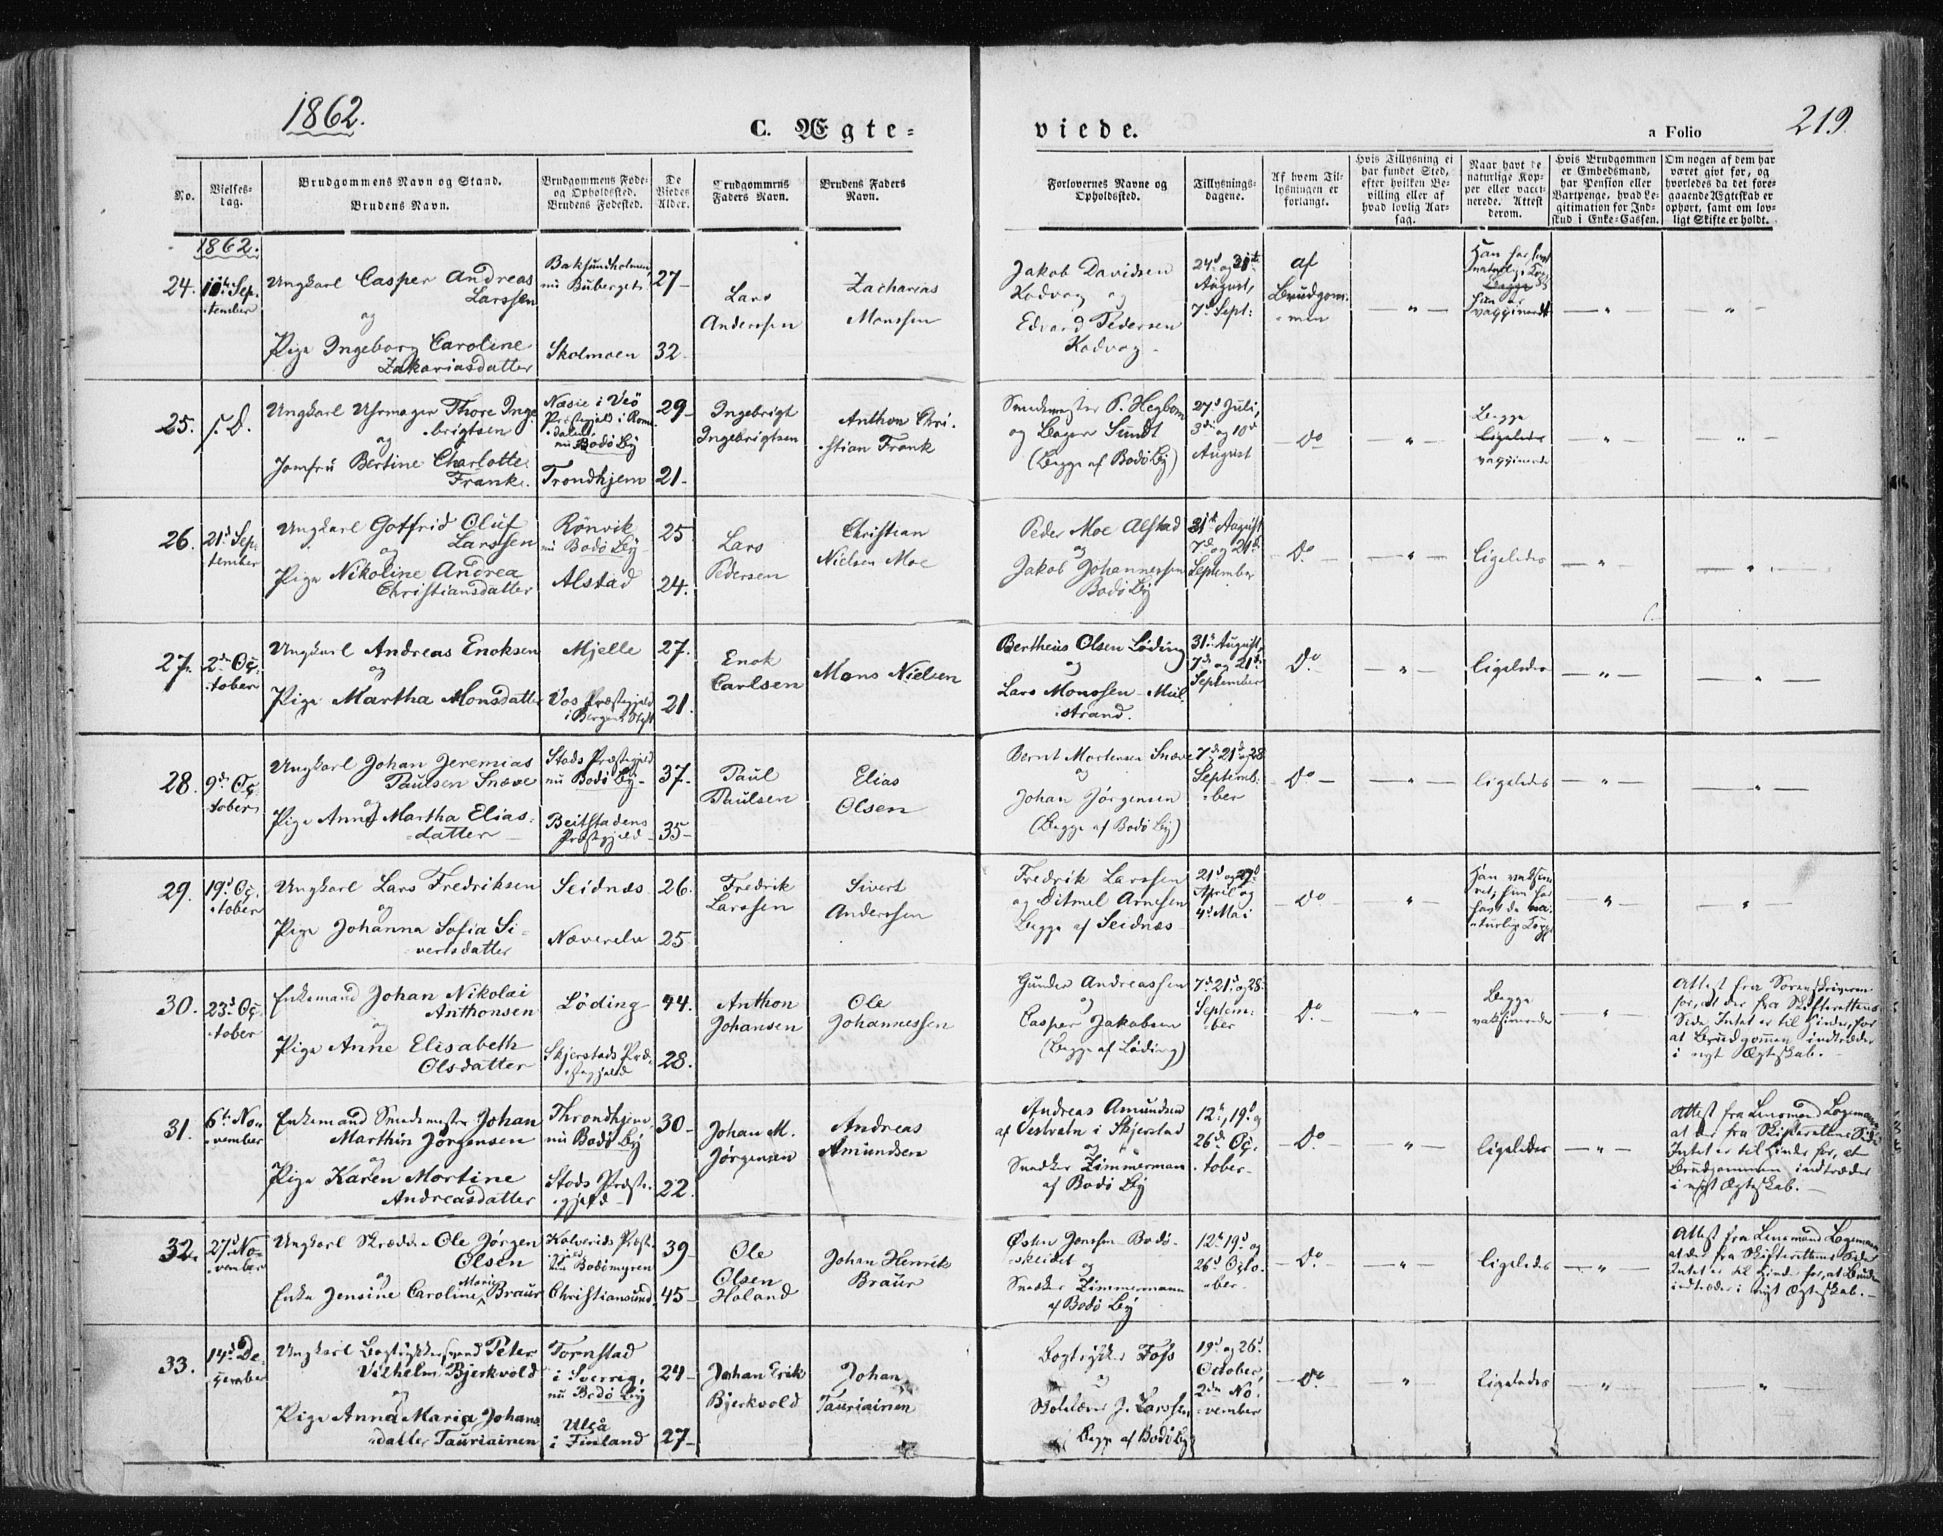 1862.
C. Ægte=
viede.
a Folio
219.
No.
Vielses-
dag.
Brudgommens Navn og Stand.
Brudens Navn.
Brudgommens Føde-
og Opholdssted.
Brudens Fødested.
De
Viedes
Alder.
Brudgommens
Faders Navn.
Brudens Faders
Navn.
Forlovernes Navne og
Opholdssted.
Tillysnings-
dagene.
Af hvem Til-
lysningen er
forlangt.
Hvis Tillysning ei
har fundet Sted,
efter hvilken Be-
villing eller af
hvad lovlig Aar-
sag.
Naar havt de
naturlige Kop-
per eller vacci-
nerede. Attest
derom.
Hvis Brudgommen
er Embedsmand,
har Pension eller
Vartpenge, hvad Le-
gitimation for Ind-
skud i Enke-Cassen.
Om nogen af dem har
været givt før, og
hvorledes da det fore-
gaaende Ægteskab er
ophørt, samt om lov-
ligt Skifte er holdt.
1862.
24.
11te Sep-
tember
Ungkarl Casper Andreas
Larssen
og
Pige Ingeborg Caroline
Zakariasdatter
Baksundholmen,
nu Buberget
Skolmoen
27
32
Lars
Anderssen
Zacharias
Monssen
Jakob Davidsen
Kodvog og
Edvard Pedersen
Kodvog
24d og 31te
August,
7d Sept:
af
Brudgom-
men
25.
s. D.
Ungkarl Uhrmager Thore Inge
brigtsen
og
Jomfru Bertine Charlotte
Frank.
Næsie i Veö
Præstegjeld i Rom
dalen,
nu Bodö By
Trondhjem
29
21
Ingebrigt
Ingebrigtsen
Anthon Chri-
stian Frank
Smedemester P. Hegbom
og Bager Sundt
(Begge af Bodö By)
27d Juli,
3di og 10d
August
Do
Begge
vaccinerede
26.
21d Sep-
tember
Ungkarl Gotfrid Oluf
Larssen
og
Pige Nikoline Andrea
Christiansdatter
Rönvik
nu Bodö By
Alstad
25
24.
Lars
Pedersen
Christian
Nielsen Moe
Peder Moe Alstad
og
Jakob Johannessen
Bodö By
31te August
7d og 21d
September
Do
ligeledes
27.
2d Oc-
tober
Ungkarl Andreas Enoksen
og
Pige Martha Monsdatter
Mjelle
Vos Præstegjeld
i Bergens Stift
27.
21.
Enok
Carlsen
Mons Nielsen
Bertheus Olsen Löding
og
Lars Monssen Mul
strand.
31te August,
7d og 21d
September
Do
ligeledes
28.
9d Oc-
tober
Ungkarl Johan Jeremias
Paulsen Snæve
og
Pige Anne Martha Elias-
datter
Stods Præstegjeld
nu Bodö By
Beitstadens
Præstegjeld
37.
35
Paul
Paulsen
Elias
Olsen
Bernt Mortensen Snæve
og
Johan Jörgensen
(Begge af Bodö By)
7d 21d og 28
Septem-
ber
Do
ligeledes
29.
19d Oc-
tober
Ungkarl Lars Fredriksen
og
Pige Johanna Sofia Si-
vertsdatter
Seidnæs
Næverelv
26.
25
Fredrik
Larssen
Sivert
Anderssen
Fredrik Larssen
og Ditmel Arnesen
Begge af Seidnæs
21d og 27d
April og
4d Mai
Do
30.
23d Oc-
tober
Enkemand Johan Nikolai
Anthonsen
og
Pige Anne Elisabeth
Olsdatter
Löding
Skjerstads Præ-
stegjeld
44.
28.
Anthon
Johansen
Ole
Johannessen
Gunder Andreassen
og
Casper Jakobsen
(Begge af Löding)
7d 21d og 28
Septem-
ber
Do
Begge
vaksinerede
Attest fra Sorenskriveren
for, at der fra Skifterettens
Side Intet er til Hinder, for
at Brudgommen indtræder
i nyt Ægteskab.
31.
6te No-
vember
Enkemand Smedemester Johan
Marthin Jörgensen
og
Pige Karen Martine
Andreasdatter
Throndhjem
nu Bodö By
Stods Præste-
gjeld
30
22.
Johan M.
Jörgensen
Andreas
Amundsen
Andreas Amundsen
af Vestvatn i Skjerstad
og
Snedker Zimmerman
af Bodö By
12te, 19d og
26d Oc-
tober
Do
ligeledes
Attest fra Lensmand Lagemann
at der fra Skifterettens Side
Intet er til Hinder for, at
Brudgommen indtræder
i nyt Ægteskab.
32.
27d No-
vember
Ungkarl Skrædder Ole Jörgen
Olsen
og
Enke Jensine Caroline Marie Braur
Kolvereids Præste-
gjeld
nu Bodömyren
Christiansund
39
45
Ole
Olsen
Holand
Johan Henrik
Braur
Östen Jonssen Bodö-
skeidet
og
Snedker Zimmermann
af Bodö By
12te 19d og
26d Octo-
ber
Do
ligeledes
Attest fra Lensmand Lagemann
at der fra Skifterettens Side
Intet er til Hinder for, at Bruden
indtræder i nyt Ægteskab.
33.
14d De-
cember
Ungkarl Bogtrykkersvend Peter
Vilhelm Bjerkvold
og
Pige Anna Maria Johans
datter Tauriainen
Tornstad
i Sverrig,
nu Bodö By
Uleå
i Finland
24
27
Johan Erik
Bjerkvold
Johan
Tauriainen
Bogtrykker Foss
og
Skolelærer J. Larssen
(Begge af Bodö By)
19d og 26d
October,
2den No-
vember
Do
ligeledes